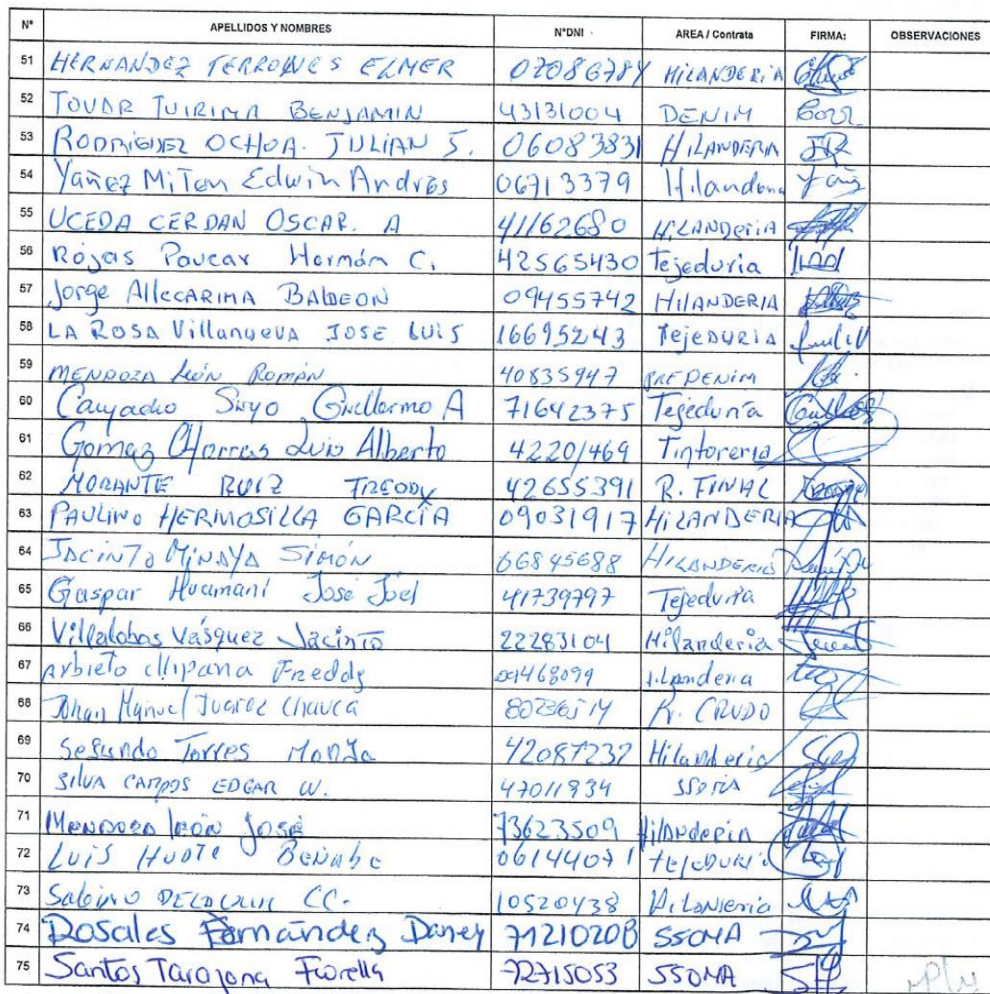 N° APELLIDOS Y NOMBRES N°DNI AREA / Contrata FIRMA: OBSERVACIONES
51 HERNANDEZ TERRONES ELMER 07086784 HILANDERIA
52 TOVAR TUIRIMA BENJAMIN 43131004 DENIM
53 RODRIGUEZ OCHOA. JULIAN S. 06083831 HILANDERIA
54 Yañez Miton Edwin Andrés 06713379 Hilanderia
55 UCEDA CERDAN OSCAR. A 41162680 HILANDERIA
56 Rojas Paucar Hernán C. 42565430 Tejeduria
57 Jorge AllccARIMA BALDEON 09455742 HILANDERIA
58 LA ROSA Villanueva JOSE LUIS 16695243 TejeDURIA
59 MENDOZA León Román 40835947 PREDENIM
60 Suyo Guillermo A 71642375 Tejeduría
61 Gomez Luis Alberto 42201469 Tintoreria
62 MORANTE RUIZ FREDDY 42655391 R. FINAL
63 PAULINO HERMOSILLA GARCÍA 09031917 HILANDERIA
64 JACINTO MINAYA SIMÓN 66845688 HILANDERIA
65 Gaspar Huamaní José Joel 41739797 Tejeduría
66 Villalobos Vásquez Jacinto 22283104 Hilanderia
67 Arbieto Freddy Hilanderia
68 Johan Manuel Juarez Chauca R. CRUDO
69 Segundo Torres Monja 42087232 Hilanderia
70 SILVA CAMPOS EDGAR W. 47011934 SSOMA
71 MENDOZA león José 73623509 HilANDERIA
72 LUIS HUOTE BENABE 06144071 TEJEDURIA
73 Sabino CC. 10520438 HILANDERIA
74 Rosales Fernández Daney 71210208 SSOMA
75 Santos Tarazona Fiorella 72715053 SSOMA